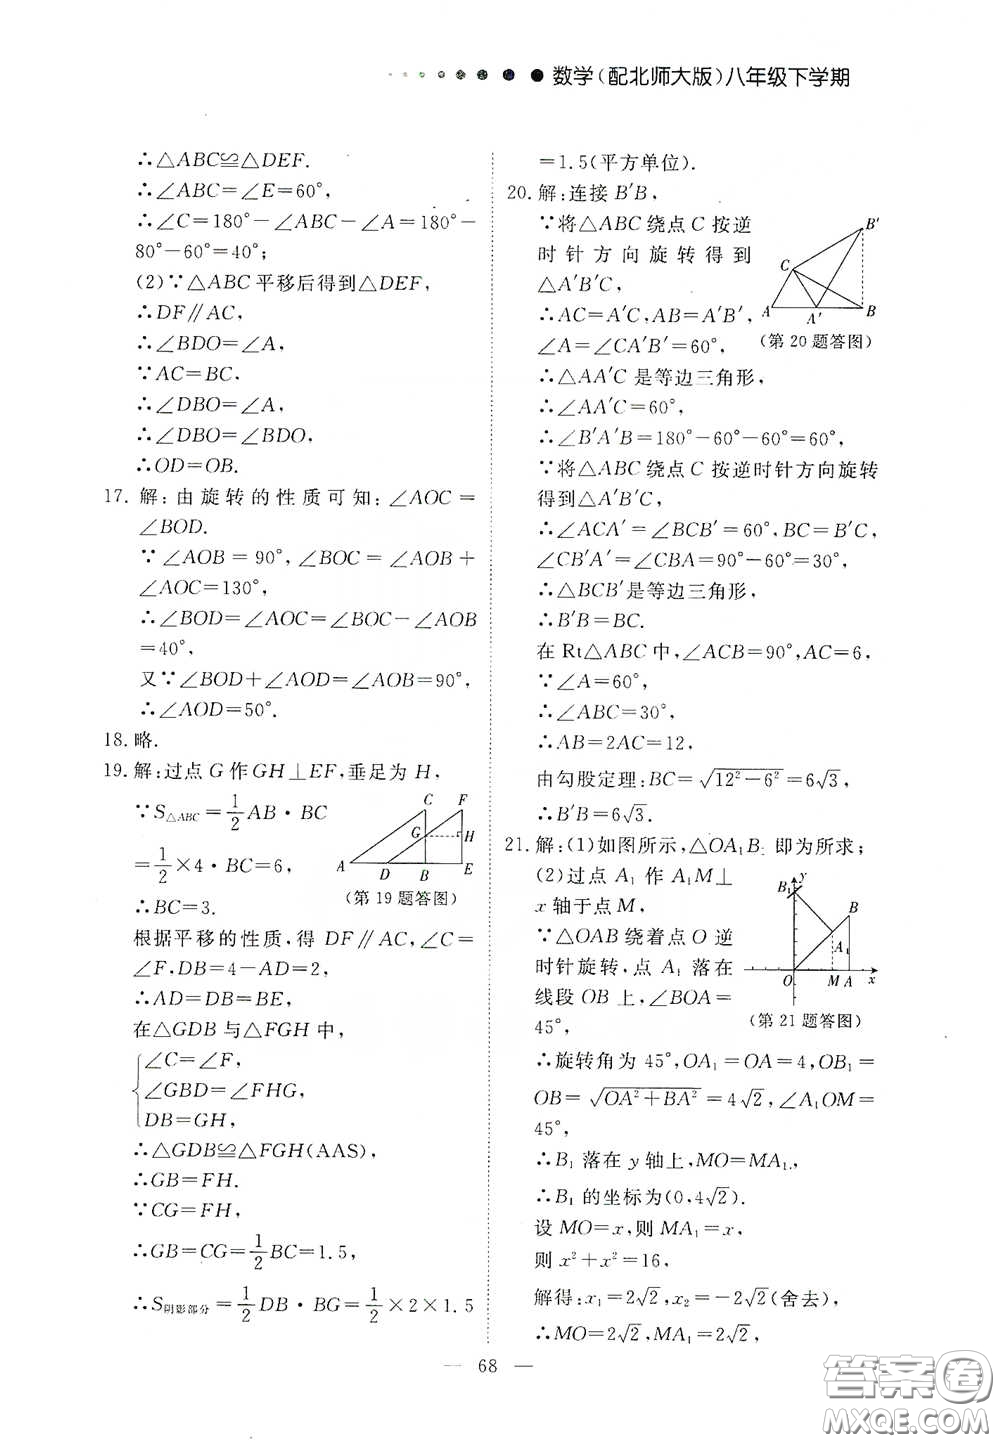 数学(配北师大版)八年级下学期
∴△ABC≌△DEF.
∴∠ABC=∠E=60°,
∴∠C=180°-∠ABC-∠A=180°-
80°-60°=40°;
(2)∵△ABC平移后得到△DEF,
∴DF∥AC,
∴∠BDO=∠A,
∵AC=BC.
∴∠DBO=∠A,
∴∠DBO=∠BDO,
∴OD=OB.
17. 解:由旋转的性质可知:∠AOC=
∠BOD.
∵∠AOB=90°,∠BOC=∠AOB+
∠AOC=130°,
∴∠BOD=∠AOC=∠BOC-∠AOB
=40°,
又∵∠BOD+∠AOD=∠AOB=90°,
∴∠AOD=50°.
18. 略.
19. 解:过点G作GH⊥EF,垂足为H,
∵S△ABC=1/2AB·BC
=1/2×4·BC=6,
∴BC=3.
C F
G H
A D B E
(第19题答图)
根据平移的性质,得DF∥AC,∠C=
∠F,DB=4-AD=2,
∴AD=DB=BE,
在△GDB与△FGH中,
∠C=∠F,
∠GBD=∠FHG,
DB=GH,
∴△GDB≌△FGH(AAS),
∴GB=FH.
∵CG=FH,
∴GB=CG=1/2BC=1.5,
∴S阴影部分=1/2DB·BG=1/2×2×1.5
=1.5(平方单位).
20. 解:连接B′B,
∵将△ABC绕点C按逆
时针方向旋转得到
△A′B′C,
∴AC=A′C,AB=A′B′,
∠A=∠CA′B′=60°,
B′
C
A A′ B
(第20题答图)
∴△AA′C是等边三角形,
∴∠AA′C=60°,
∴∠B′A′B=180°-60°-60°=60°,
∵将△ABC绕点C按逆时针方向旋转
得到△A′B′C,
∴∠ACA′=∠BCB′=60°,BC=B′C,
∠CB′A′=∠CBA=90°-60°=30°,
∴△BCB′是等边三角形,
∴B′B=BC.
在Rt△ABC中,∠ACB=90°,AC=6,
∵∠A=60°,
∴∠ABC=30°,
∴AB=2AC=12,
由勾股定理:BC=√(12²-6²)=6√3,
∴B′B=6√3.
21. 解:(1)如图所示,△OA₁B₁即为所求;
(2)过点A₁作A₁M⊥
x轴于点M,
∵△OAB绕着点O逆
时针旋转,点A₁落在
线段OB上,∠BOA=
45°,
B₁ y
B
A₁
O M A x
(第21题答图)
∴旋转角为45°,OA₁=OA=4,OB₁=
OB=√(OA²+BA²)=4√2,∠A₁OM=
45°,
∴B₁落在y轴上,MO=MA₁,
∴B₁的坐标为(0,4√2).
设MO=x,则MA₁=x,
则x²+x²=16,
解得:x₁=2√2,x₂=-2√2(舍去),
∴MO=2√2,MA₁=2√2,
— 68 —
答案圈
MXQE.COM